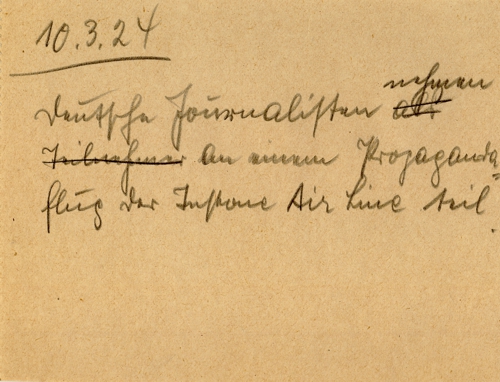 10.3.24
nehmen
Deutsche Journalisten als
Teilnehmer an einem Propaganda-
flug der Instone Air Line teil